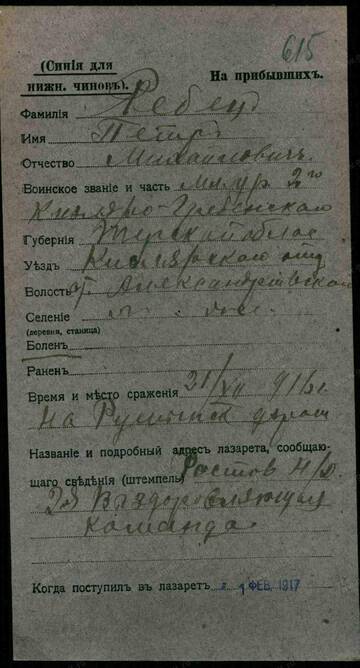 615
(Синія для
нижн. чиновъ).
На прибывшихъ.
Фамилія Ребецъ
Имя Петръ
Отчество Михайловичъ
Воинское званіе и часть Мл. ур. 2го
Кизляро-Гребенскаго
Губернія Терской облас
Уѣздъ Кизлярскаго отд
Волость ст. Александрійской
Селеніе
(деревня, станица)
Боленъ
Раненъ
Время и мѣсто сраженія 21/XII 916 г.
На Румынск фронт
Названіе и подробный адресъ лазарета, сообщаю-
щаго свѣдѣнія (штемпель) Ростов Н/Д.
2я Выздоравляющая
команда
Когда поступилъ въ лазаретъ 1 ФЕВ. 1917